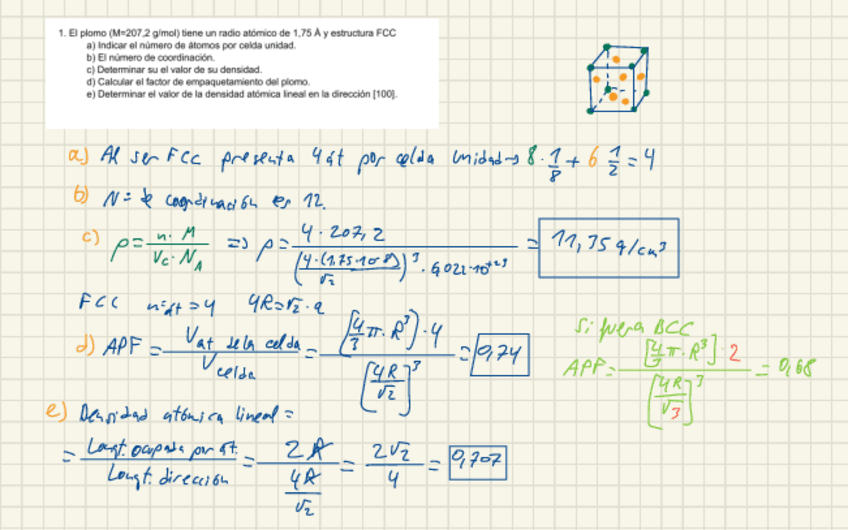 1. El plomo (M=207,2 g/mol) tiene un radio atómico de 1,75 Å y estructura FCC
a) Indicar el número de átomos por celda unidad.
b) El número de coordinación.
c) Determinar su el valor de su densidad.
d) Calcular el factor de empaquetamiento del plomo.
e) Determinar el valor de la densidad atómica lineal en la dirección [100].
a) Al ser FCC presenta 4 át por celda unidad → 8 · 1/8 + 6 1/2 = 4
b) Nº de coordinación es 12.
c) ρ = n · M / Vc · N_A => ρ = 4 · 207,2 / (4 · (1,75·10^-8) / √2)^3 · 6,022·10^+23 = 11,35 g/cm³
FCC nºát = 4 4R = √2 · a
d) APF = Vat de la celda / Vcelda = [4/3 π · R³] · 4 / [4R/√2]³ = 0,74
Si fuera BCC
APF = [4/3 π · R³] · 2 / [4R/√3]³ = 0,68
e) Densidad atómica lineal =
= Longt. ocupada por át. / Longt. dirección = 2R / (4R/√2) = 2√2 / 4 = 0,707